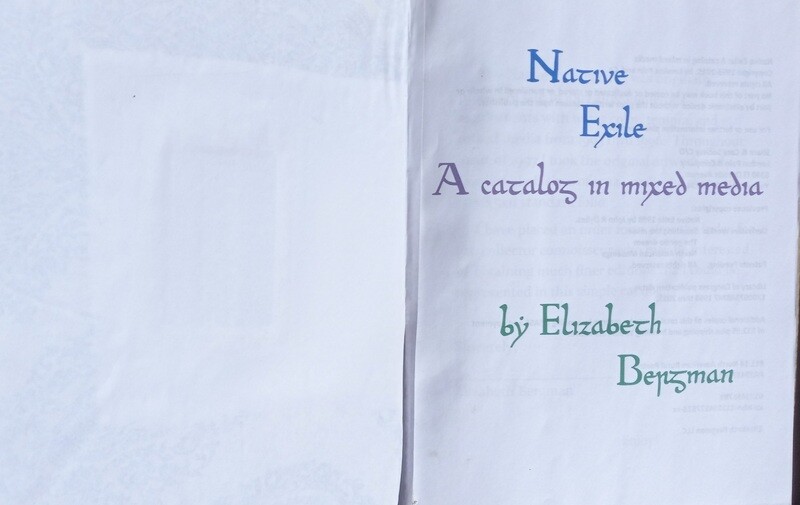 Native
Exile
A catalog in mixed media
by Elizabeth
Bergman